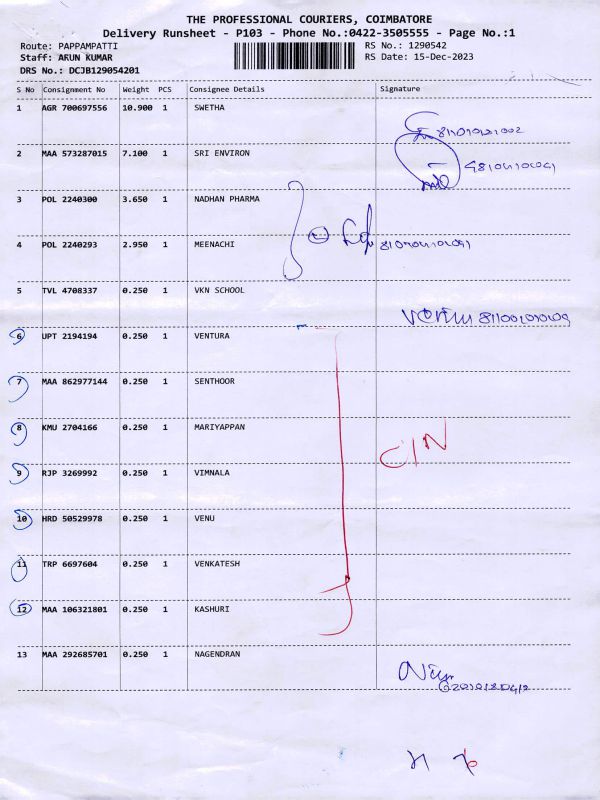 THE PROFESSIONAL COURIERS, COIMBATORE
Delivery Runsheet - P103 - Phone No.:0422-3505555 - Page No.:1
Route: PAPPAMPATTI RS No.: 1290542
Staff: ARUN KUMAR RS Date: 15-Dec-2023
DRS No.: DCJB129054201
S No Consignment No Weight PCS Consignee Details Signature
1 AGR 700697556 10.900 1 SWETHA
2 MAA 573287015 7.100 1 SRI ENVIRON
3 POL 2240300 3.650 1 NADHAN PHARMA
4 POL 2240293 2.950 1 MEENACHI
5 TVL 4708337 0.250 1 VKN SCHOOL
6 UPT 2194194 0.250 1 VENTURA
7 MAA 862977144 0.250 1 SENTHOOR
8 KMU 2704166 0.250 1 MARIYAPPAN
C/N
9 RJP 3269992 0.250 1 VIMNALA
10 HRD 50529978 0.250 1 VENU
11 TRP 6697604 0.250 1 VENKATESH
12 MAA 106321801 0.250 1 KASHURI
13 MAA 292685701 0.250 1 NAGENDRAN